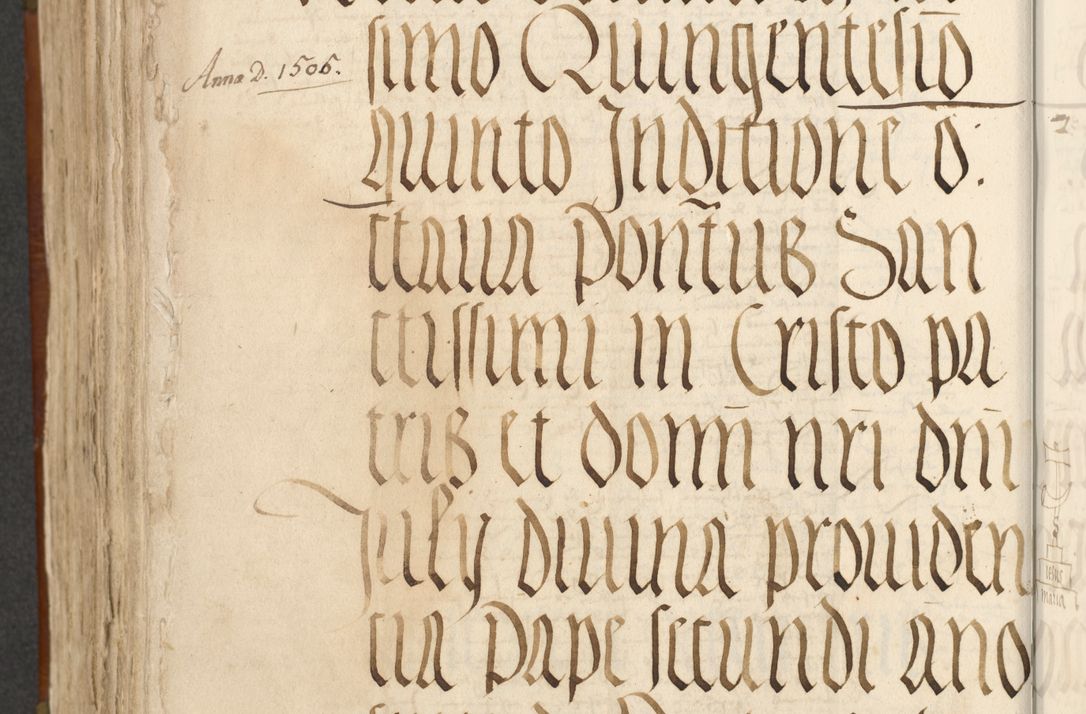 Anno D. 1505.
simo Quingentesio
quinto Inditione o.
ctaua pontus San
ctissimi in Cristo pa
tris et domī nrī dnī
Iulÿ diuina prouiden
cia pape secundi ano
Iesus
maria